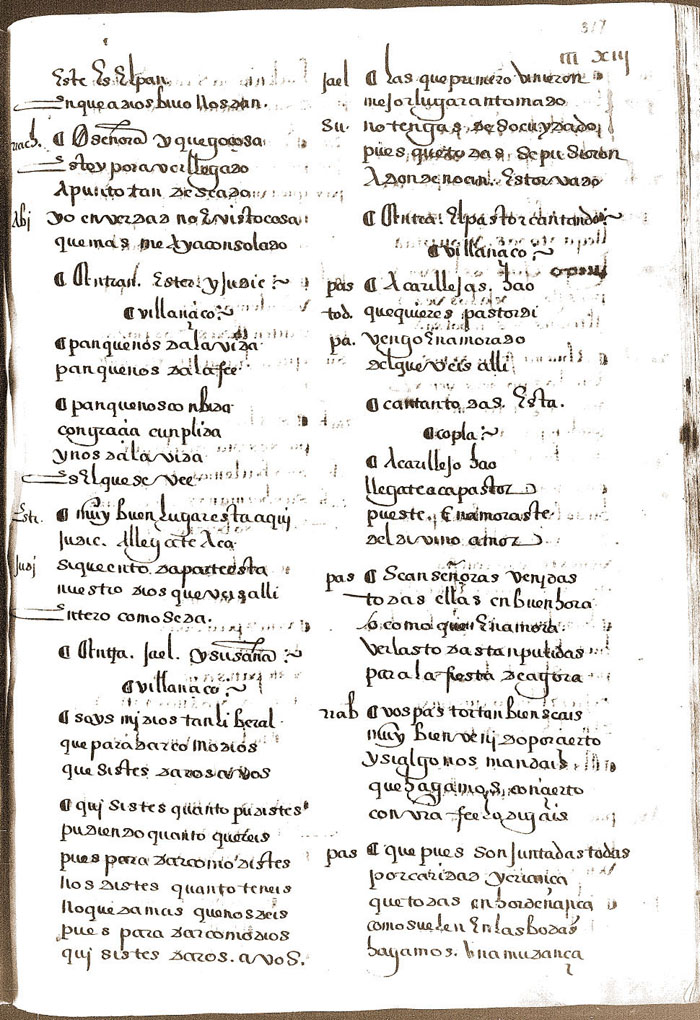 317
m xiij
Este Es El pan
En que a dios biuo nos dan.
rrach. O señora y que gozosa
Estoy por aver llegado
A punto tan deseado
Abi yo en verdad no E visto cosa
que mas me aya consolado
Entran. Ester. y Judic
villançico
pan que nos da la vida
pan que nos da la fee
pan que nos conbida
con graçia cunplida
y nos da la vida
Es El que se vee
Estr. muy buen lugar esta aqui
Judic. Allegate Aca
Judj si que ento da parte esta
nuestro dios que veis alli
Entero como se da.
Entra. Jael. y susaña
villançico
soys mj dios tan liberal
que para dar como dios
quesistes daros a vos
quisistes quanto pudistes
pudiendo quanto quereis
pues para dar como distes
nos distes quanto teneis
no queda mas que nos deis
pues para dar como dios
quisistes daros. a vos.
Jael las que primero vinieron
mejor lugar an tomado
Su. no tengas dese cuydado
pues que todas se pudieron
A donde no an. Estorvado
Entra. El pastor cantando
villançico
pas A carillejas hao
tod. que quieres pastor di
pa. vengo Enamorado
del que veis alli
cantan todas Esta.
copla
A carillejo hao
llegate aca pastor
pues te. Enamoraste
del divino amor
pas Sean señoras venjdas
todas ellas en buen hora
o como que Enamora
verlas todas tan pulidas
para la fiesta de agora
rrab vos pastor tan bien seais
muy bien venjdo por çierto
y si algo nos mandais
que hagamos, conçierto
con vra fee lo digais
pas que pues son juntadas todas
por caridad y criança
que todas en hordenança
como suelen En las bodas
hagamos. Una mudança